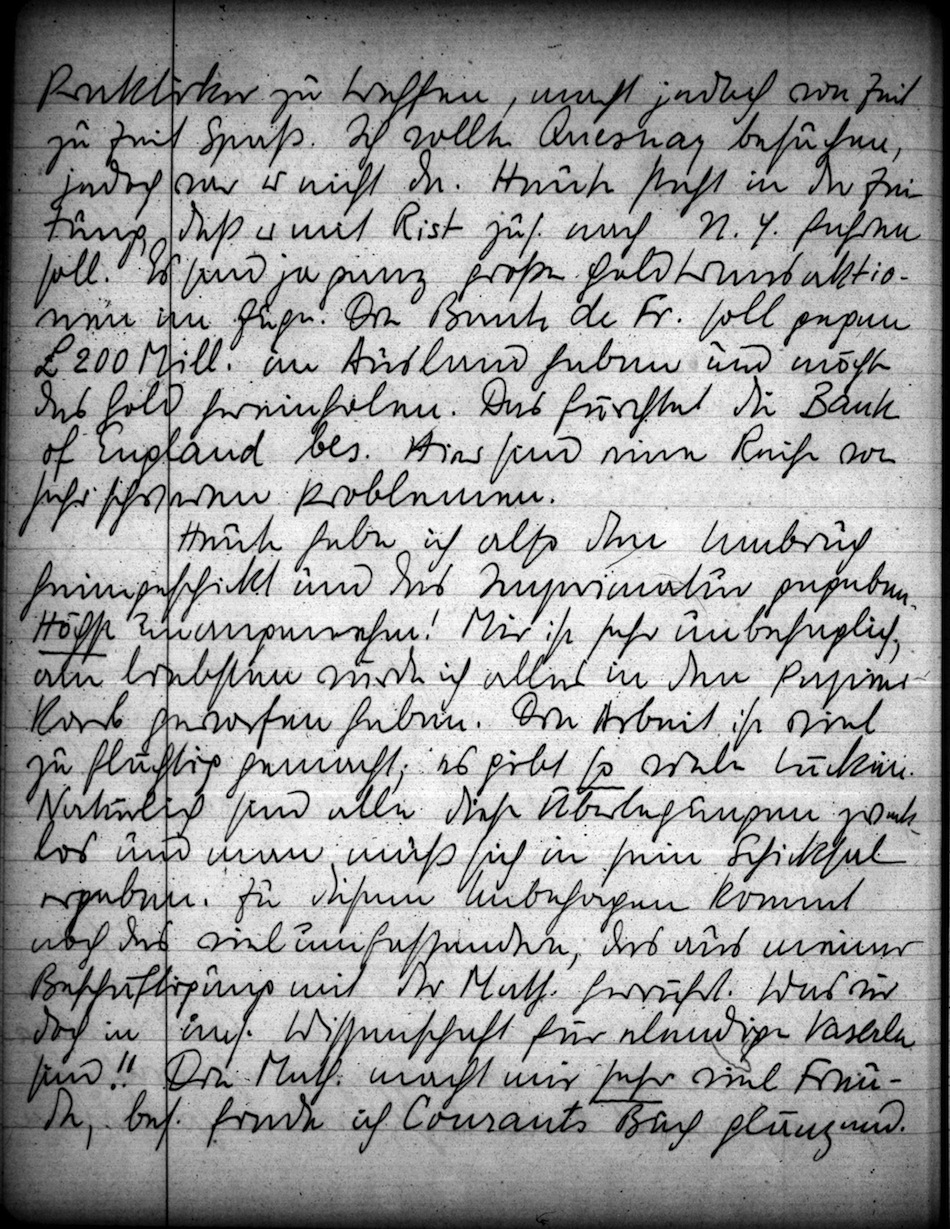 Praktiker zu treffen, macht jedoch von Zeit
zu Zeit Spaß. Ich wollte Quesnay besuchen,
jedoch war er nicht da. Heute steht in der Zei-
tung, daß er mit Rist zus. nach N. Y. fahren
soll. Es sind ja ganz große Goldtransaktio-
nen im Zuge. Die Bank de Fr. soll gegen
£ 200 Mill. im Ausland haben und möchte
das Gold hereinholen. Das fürchtet die Bank
of England bes. Hier sind eine Reihe von
sehr schweren Problemen.
Heute habe ich also den Umbruch
heimgeschickt und das Imprimatur gegeben.
Höchst unangenehm! Mir ist sehr unbehaglich,
am liebsten würde ich alles in den Papier-
korb geworfen haben. Die Arbeit ist viel
zu flüchtig gemacht; es gibt so viele Lücken.
Natürlich sind alle diese Überlegungen zweck-
los und man muß sich in sein Schicksal
ergeben. Zu diesem Unbehagen kommt
noch das viel umfassendere, das aus meiner
Beschäftigung mit der Math. herrührt. Was wir
doch in uns. Wissenschaft für elendige Patzer
sind!! Die Math. macht mir sehr viel Freu-
de, bes. finde ich Courants Buch glänzend.